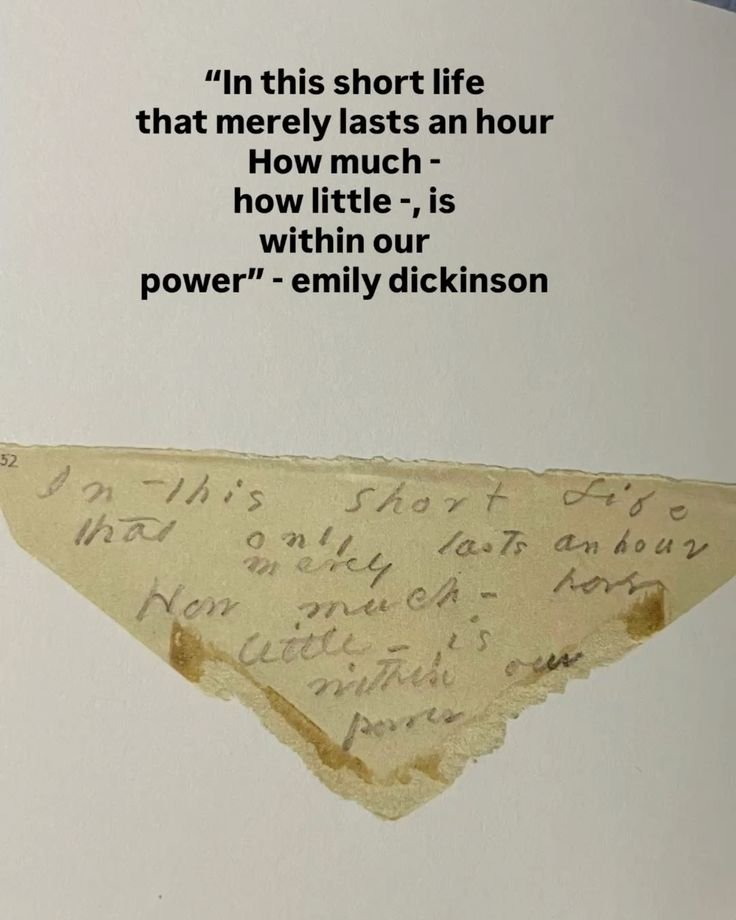 “In this short life
that merely lasts an hour
How much -
how little -, is
within our
power” - emily dickinson
52
In this short Life
that only lasts an hour
merely
How much - how
little - is
within our
power